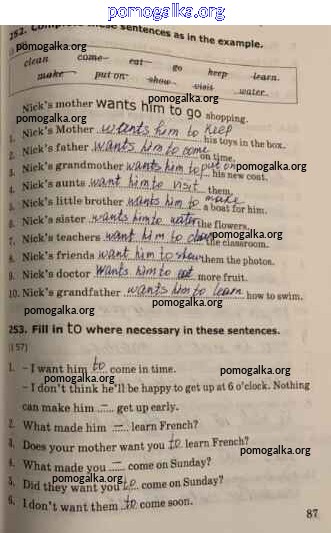 pomogalka.org
252. Complete these sentences as in the example.
clean come eat go keep learn
make put on show visit water
pomogalka.org
pomogalka.org
Nick's mother wants him to go shopping.
pomogalka.org
1. Nick's Mother wants him to keep his toys in the box.
pomogalka.org
2. Nick's father wants him to come on time.
3. Nick's grandmother wants him to put on his new coat.
pomogalka.org
pomogalka.org
4. Nick's aunts want him to visit them.
5. Nick's little brother wants him to make a boat for him.
pomogalka.org
6. Nick's sister wants him to water the flowers.
pomogalka.org
7. Nick's teachers want him to clean the classroom.
pomogalka.org
8. Nick's friends want him to show them the photos.
pomogalka.org
9. Nick's doctor wants him to eat more fruit.
pomogalka.org
10. Nick's grandfather wants him to learn how to swim.
pomogalka.org
253. Fill in to where necessary in these sentences.
(157)
pomogalka.org
1. – I want him to come in time.
pomogalka.org
– I don't think he'll be happy to get up at 6 o'clock. Nothing
can make him – get up early.
pomogalka.org
2. What made him – learn French?
pomogalka.org
3. Does your mother want you to learn French?
pomogalka.org
pomogalka.org
4. What made you – come on Sunday?
5. Did they want you to come on Sunday?
pomogalka.org
6. I don't want them to come soon.
87
pomogalka.org